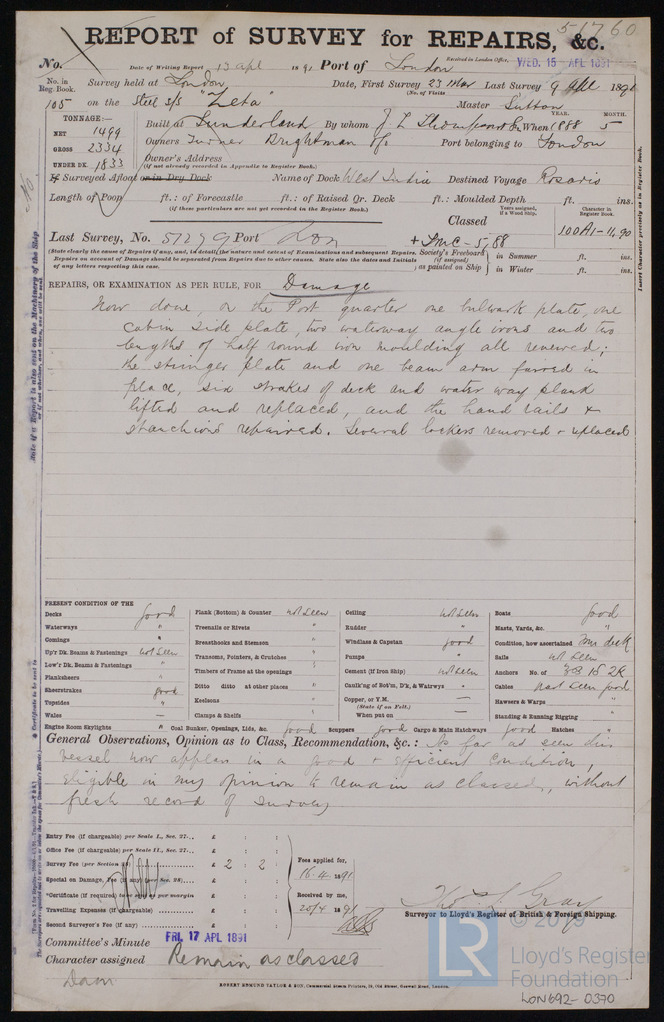 51760
REPORT of SURVEY for REPAIRS, &c.
No. Date of Writing Report 13 Apl 1891 Port of London Received in London Office, WED. 15 APL 1891
No. in Reg. Book. Survey held at London Date, First Survey 23 Mar Last Survey 9 Apl 1891
(No. of Visits
105 on the Steel s/s "Zeta" Master Sutton
TONNAGE:— Built at Sunderland By whom J. L. Thompson & When 1888 5
YEAR. MONTH.
NET 1499
GROSS 2334 Owners Turner Brightman & Co. Port belonging to London
UNDER DK. 1833 Owner's Address
(if not already recorded in Appendix to Register Book.)
If Surveyed Afloat or in Dry Dock Name of Dock West India Destined Voyage Rosario
Length of Poop ft.: of Forecastle ft.: of Raised Qr. Deck ft.: Moulded Depth ft. ins.
(if these particulars are not yet recorded in the Register Book.)
Years assigned, if a Wood Ship. Character in Register Book.
Classed 100A1-11,90
Last Survey, No. 51279 Port Lon + LMC-5,88
(State clearly the cause of Repairs if any, and, in detail, the nature and extent of Examinations and subsequent Repairs.
Repairs on account of Damage should be separated from Repairs due to other causes. State also the dates and Initials
of any letters respecting this case.
Society's Freeboard (if assigned) as painted on Ship in Summer ft. ins.
in Winter ft. ins.
REPAIRS, OR EXAMINATION AS PER RULE, FOR Damage
Now done, on the Port quarter one bulwark plate, one
cabin side plate, two waterway angle irons and two
lengths of half round iron moulding all renewed;
the stringer plate and one beam arm faired in
place, six strakes of deck and water way plank
lifted and replaced, and the hand rails &
stanchions repaired. Several lockers removed & replaced
PRESENT CONDITION OF THE
Decks good
Waterways "
Comings "
Up'r Dk. Beams & Fastenings not seen
Low'r Dk. Beams & Fastenings "
Planksheers "
Sheerstrakes good
Topsides "
Wales —
Engine Room Skylights "
Plank (Bottom) & Counter not seen
Treenails or Rivets "
Breasthooks and Stemson "
Transoms, Pointers, & Crutches "
Timbers of Frame at the openings "
Ditto ditto at other places "
Keelsons "
Clamps & Shelfs "
Coal Bunker, Openings, Lids, &c. good
Ceiling not seen
Rudder "
Windlass & Capstan good
Pumps "
Cement (if Iron Ship) not seen
Caulk'ng of Bot'm, D'k, & Waterways "
Copper, or Y.M. —
(State if on Felt.)
When put on —
Scuppers good Cargo & Main Hatchways good Hatches "
Boats good
Masts, Yards, &c. "
Condition, how ascertained from deck
Sails not seen
Anchors No. of 3B 1S 2K
Cables part seen good
Hawsers & Warps "
Standing & Running Rigging "
General Observations, Opinion as to Class, Recommendation, &c.: As far as seen this
vessel now appears in a good & efficient condition,
eligible in my opinion to remain as classed, without
fresh record of survey
Entry Fee (if chargeable) per Scale I., Sec. 27... £ : :
Office Fee (if chargeable) per Scale II., Sec. 27... £ : :
Survey Fee (per Section 28) £ 2 : 2 :
Special on Damage, Fee (if any) (per Sec. 28) £ : :
*Certificate (if required) as per margin £ : :
Travelling Expense (if chargeable) £ : :
Second Surveyor's Fee (if any) £ : :
Fees applied for,
16.4.1891
Received by me,
20/4 1891
Thos. J. Gray
Surveyor to Lloyd's Register of British & Foreign Shipping.
Committee's Minute FRI. 17 APL 1891
Character assigned Remain as classed
Dam
ROBERT EDMUND TAYLOR & SON, Commercial Steam Printers, 19, Old Street, Goswell Road, London.
© 2019
LR Lloyd's Register
Foundation
LON692-0370
Insert Character precisely as in Register Book.